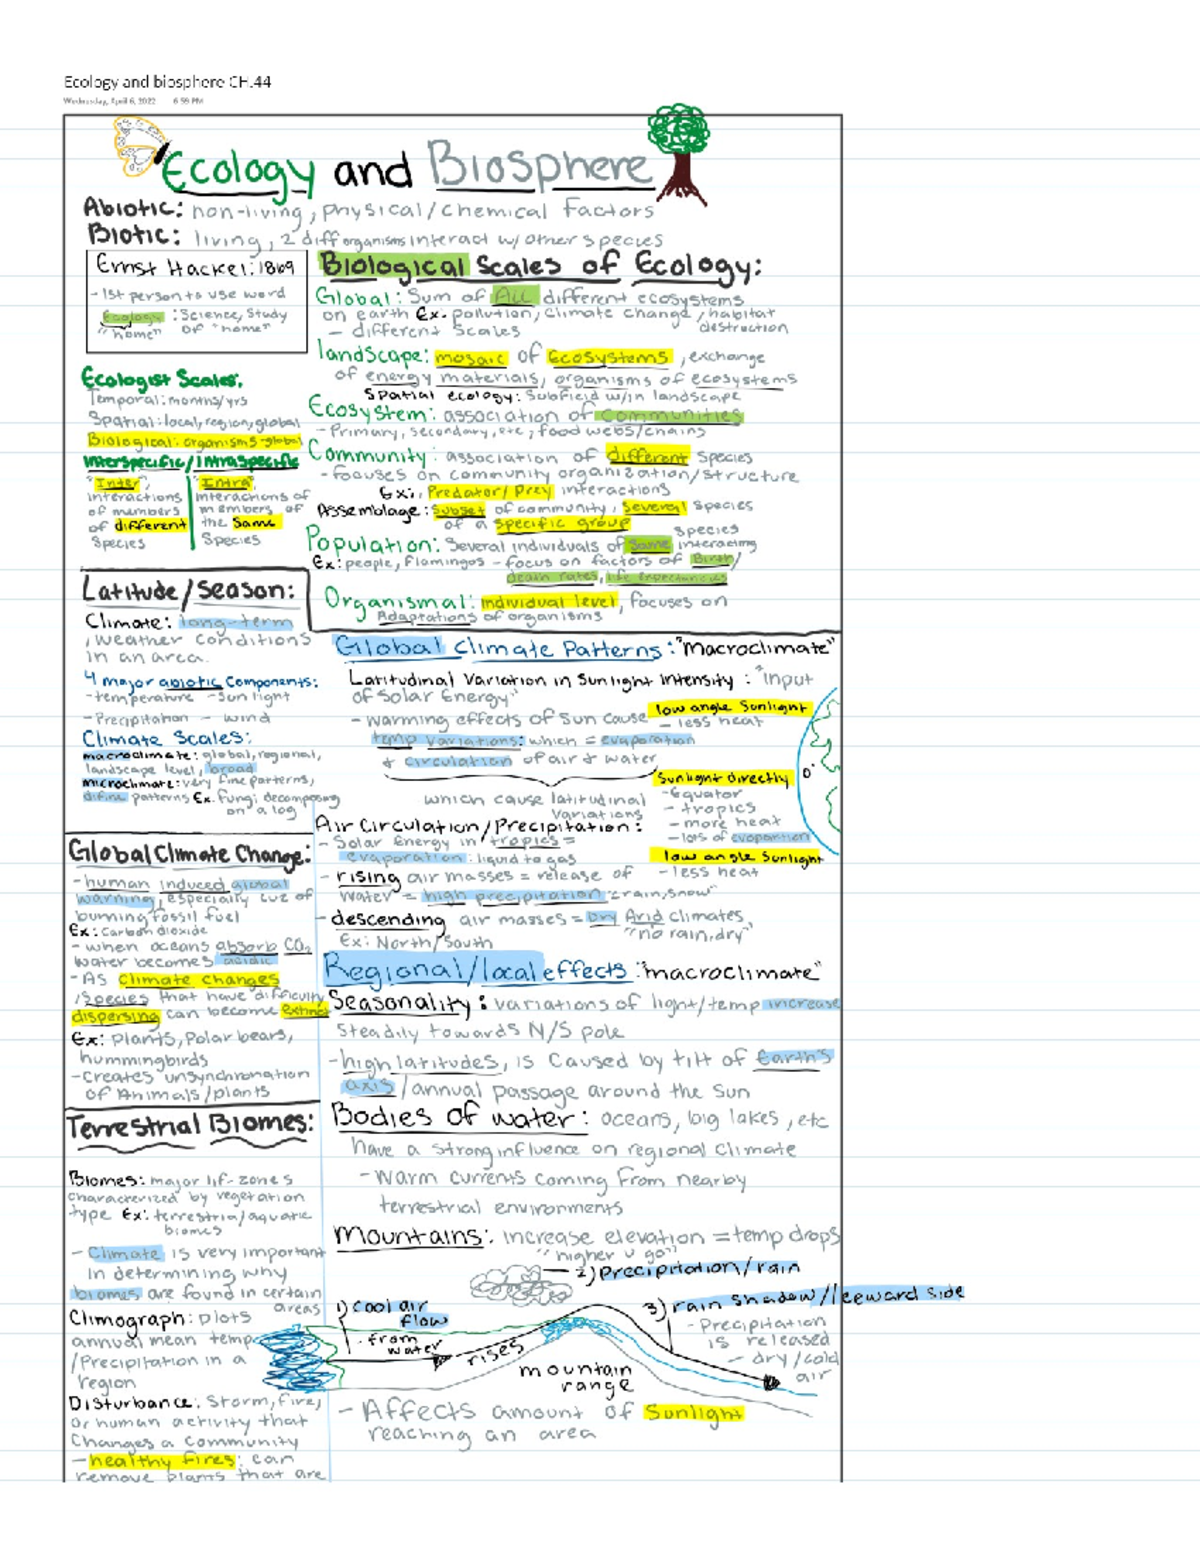 Ecology and biosphere CH.44
Wednesday, April 6, 2022 6:59 PM
Ecology and Biosphere
Abiotic: non-living, physical/chemical factors
Biotic: living, 2 diff organisms interact w/ other species
Ernst Hackel: 1869
- 1st person to use word
Ecology : Science, Study
"home" of "home"
Ecologist Scales:
Temporal: months/yrs
Spatial: local, region, global
Biological: organisms-global
Interspecific/Intraspecific
"Inter",
interactions
of members
of different
Species
"Intra",
interactions of
members of
the Same
Species
Biological Scales of Ecology:
Global: Sum of All different ecosystems
on earth Ex. pollution, climate change, habitat
destruction
- different scales
landscape: mosaic of Ecosystems, exchange
of energy materials, organisms of ecosystems
Spatial ecology: Subfield w/in landscape
Ecosystem: association of communities
- Primary, secondary, etc, food webs/chains
Community: association of different species
- focuses on community organization/structure
Ex:, Predator/Prey interactions
Assemblage: Subset of community, Several species
of a specific group
Population: Several individuals of Same species interacting
Ex: people, Flamingos - focus on factors of Birth/
death rates, life expectancies
Organismal: individual level, focuses on
Adaptations of organisms
Latitude/season:
Climate: long-term
, weather conditions
in an area.
4 major abiotic components:
- temperature - Sunlight
- Precipitation - wind
Climate Scales:
macroclimate: global, regional,
landscape level, broad
microclimate: very fine patterns,
patterns Ex. Fungi decomposing
on a log
Global Climate Change:
- human induced global
warming, especially cuz of
burning fossil fuel
Ex: Carbon dioxide
- when oceans absorb CO2
water becomes acidic
- As climate changes
/species that have difficulty
dispersing can become extinct
Ex: plants, Polar bears,
hummingbirds
- Creates unsynchronation
of Animals/plants
Terrestrial Biomes:
Biomes: major lif-zones
characterized by vegetation
type Ex: terrestria/aquatic
biomes
- Climate is very important
in determining why
biomes are found in certain
areas
Climograph: plots
annual mean temp
/Precipitation in a
region
Disturbance: Storm, fire,
or human activity that
Changes a community
- healthy fires: can
remove plants that are
Global Climate Patterns: "macroclimate"
Latitudinal Variation in Sunlight Intensity : "Input
of Solar Energy"
- warming effects of Sun cause
temp variations: which = evaporation
& circulation of air & water
which cause latitudinal
variations
low angle Sunlight
- less heat
Sunlight directly
- Equator
- tropics
- more heat
- lots of evaporation
low angle Sunlight
- less heat
0°
Air Circulation/Precipitation:
- Solar Energy in tropics =
evaporation: liquid to gas
- rising air masses = release of
water = high precipitation "rain, snow"
- descending air masses = Dry Arid climates,
"no rain, dry"
Ex: North/South
Regional/local effects: "macroclimate"
Seasonality: variations of light/temp increase
Steadily towards N/S pole
- high latitudes, is Caused by tilt of Earth's
axis/annual passage around the Sun
Bodies of water: oceans, big lakes, etc
have a strong influence on regional Climate
- Warm currents coming from nearby
terrestrial environments
Mountains: increase elevation = temp drops
"higher u go"
2) Precipitation/rain
1) cool air
flow
- from
water
rises
mountain
range
3) rain shadow/leeward side
- Precipitation
is released
- dry/cold
air
- Affects amount of Sunlight
reaching an area